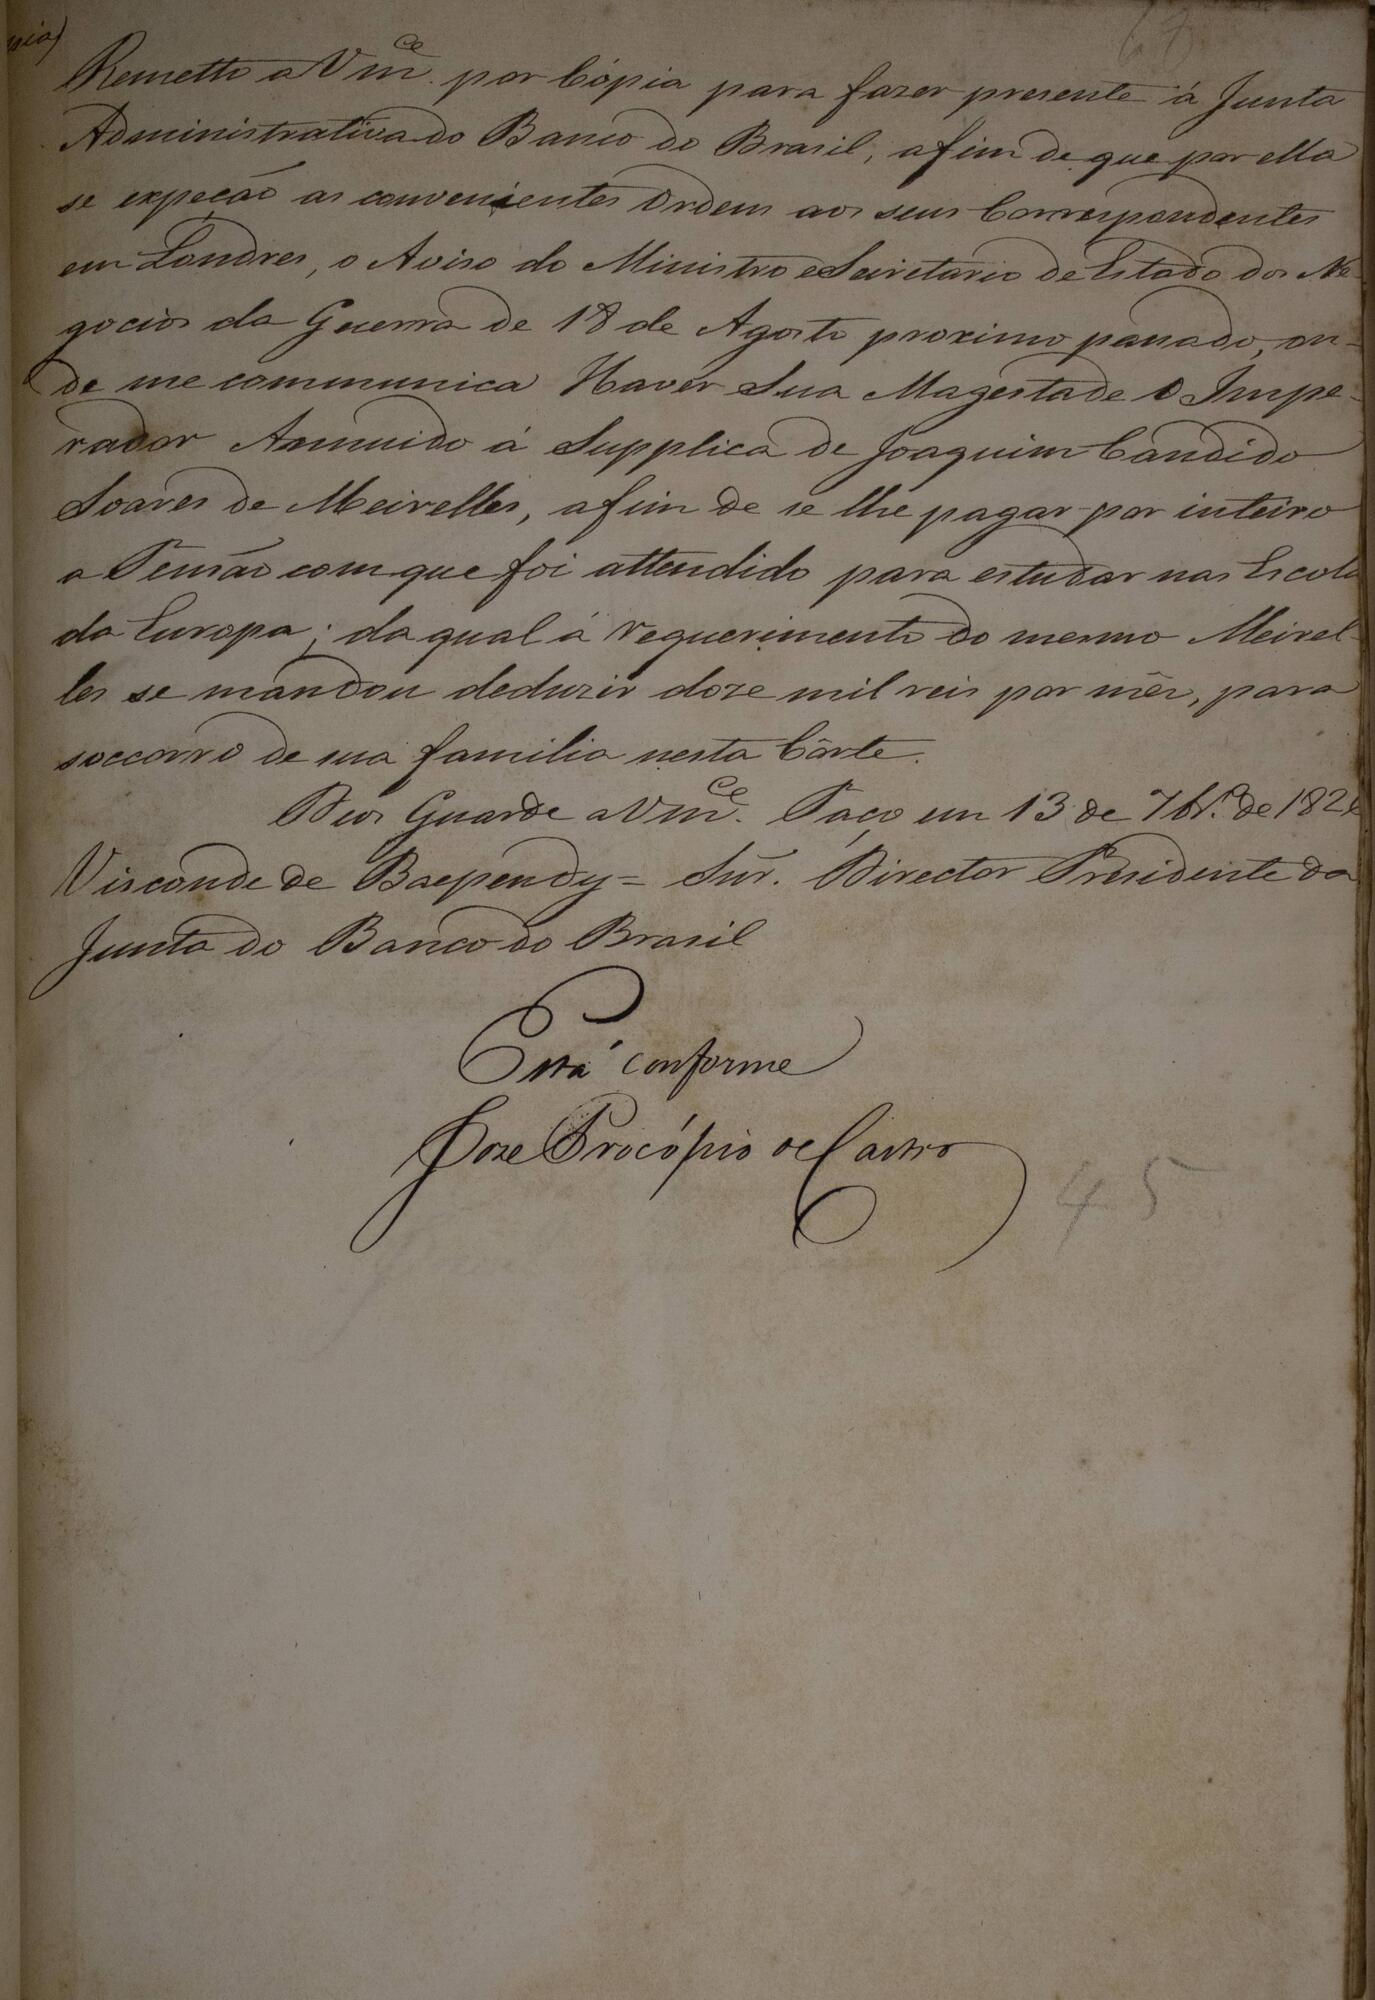 Remetto a Vm.ce por Cópia para fazer presente á Junta
Administrativa do Banco do Brasil, afim de que por ella
se expeção as convenientes Ordens aos seus Correspondentes
em Londres, o Aviso do Ministro e Secretario de Estado dos Ne-
gocios da Guerra de 18 de Agosto proximo passado, on-
de me communica Haver Sua Magestade O Impe-
rador Annuido á Supplica de Joaquim Candido
Soares de Meirelles, afim de se lhe pagar por inteiro
a Pensão com que foi attendido para estudar nas Escolas
da Europa; da qual á requerimento do mesmo Meirel-
les se mandou deduzir doze mil reis por mêz, para
soccorro de sua familia nesta Côrte.
Deos Guarde a Vm.ce Paço em 13 de 7br.o de 182
Visconde de Baependy = Snr. Director Presidente da
Junta do Banco do Brasil
Está conforme
Joze Procópio de Castro
45